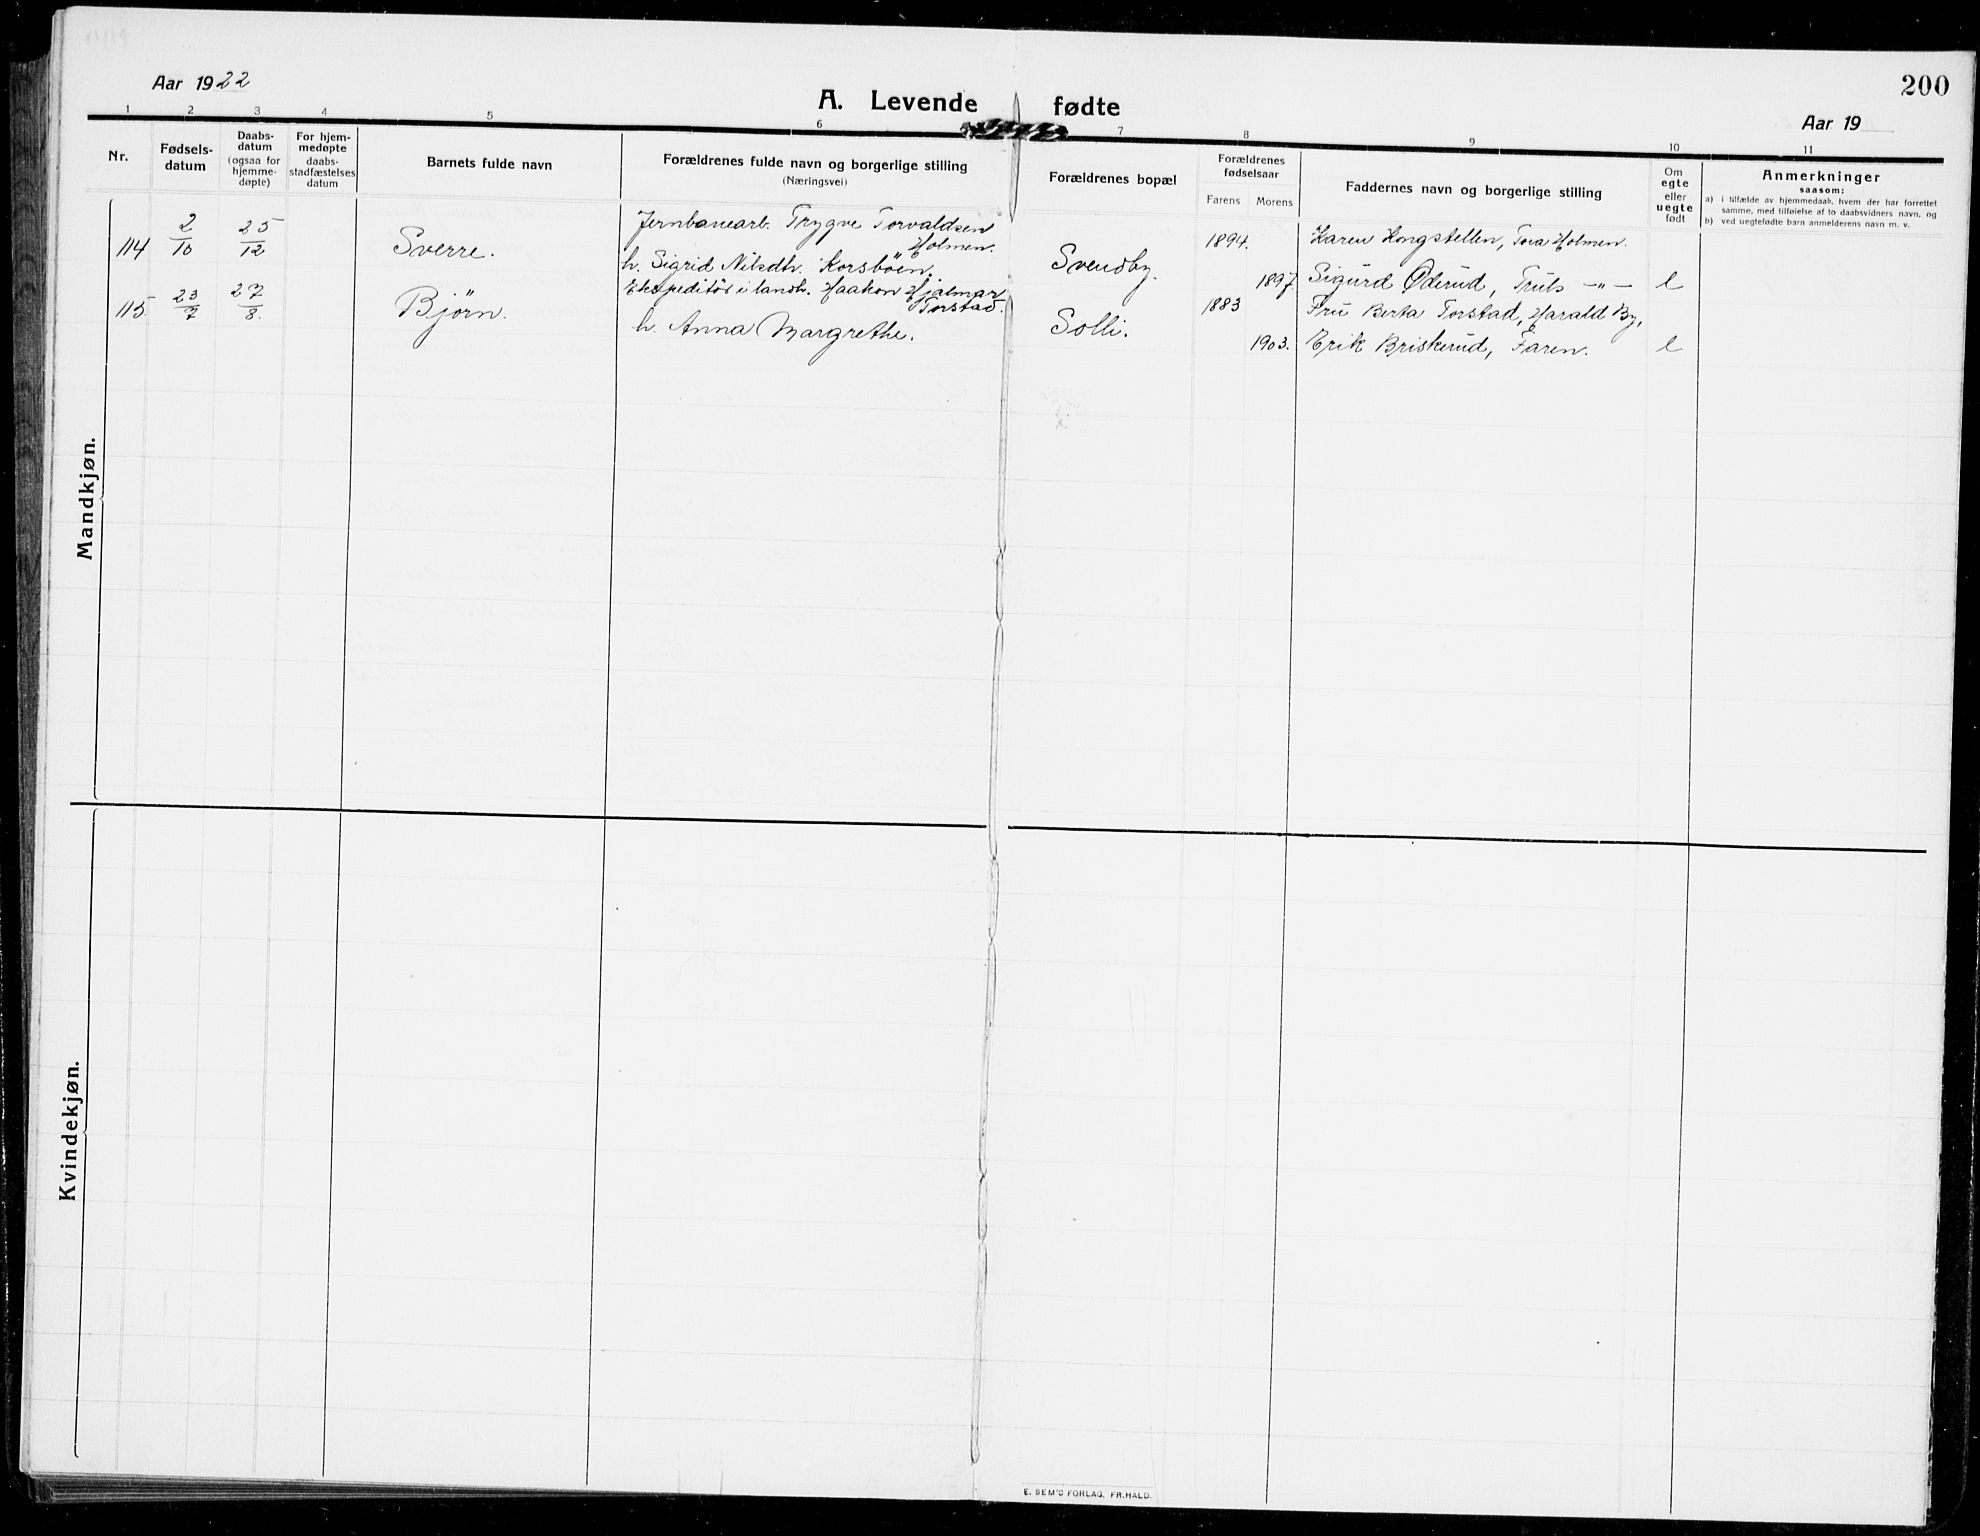 200
Aar 1922
A. Levende fødte
Aar 19
1 2 3 4 5 6 7 8 9 10 11
Nr.
Fødsels-
datum
Daabs-
datum
(ogsaa for
hjemme-
døpte)
For hjem-
medøpte
daabs-
stadfæstelses
datum
Barnets fulde navn
Forældrenes fulde navn og borgerlige stilling
(Næringsvei)
Forældrenes bopæl
Forældrenes
fødselsaar
Farens Morens
Faddernes navn og borgerlige stilling
Om
egte
eller
uegte
født
Anmerkninger
saasom:
a) i tilfælde av hjemmedaab, hvem der har forrettet
samme, med tilføielse af to daabsvidners navn, og
b) ved uegtefødte barn anmelderens navn m. v.
Mandkjøn.
114 2/10 25/12 Sverre. Jernbanearb. Trygve Torvaldsen
Holmen.
h. Sigrid Nilsdtr. Korsböen.
Svendby. 1894. 1897.
Karen Kongstellen, Tora Holmen.
Sigurd Øderud, Truls -"- e
115 23/7 27/8. Björn. Ekspeditör i landh. Haakon Hjalmar
Torstad.
h. Anna Margrethe.
Solli. 1883 1903.
Fru Berta Torstad, Harald By,
Erik Briskerud, Faren. e
Kvindekjøn.
E. SEM'S FORLAG, FR.HALD.